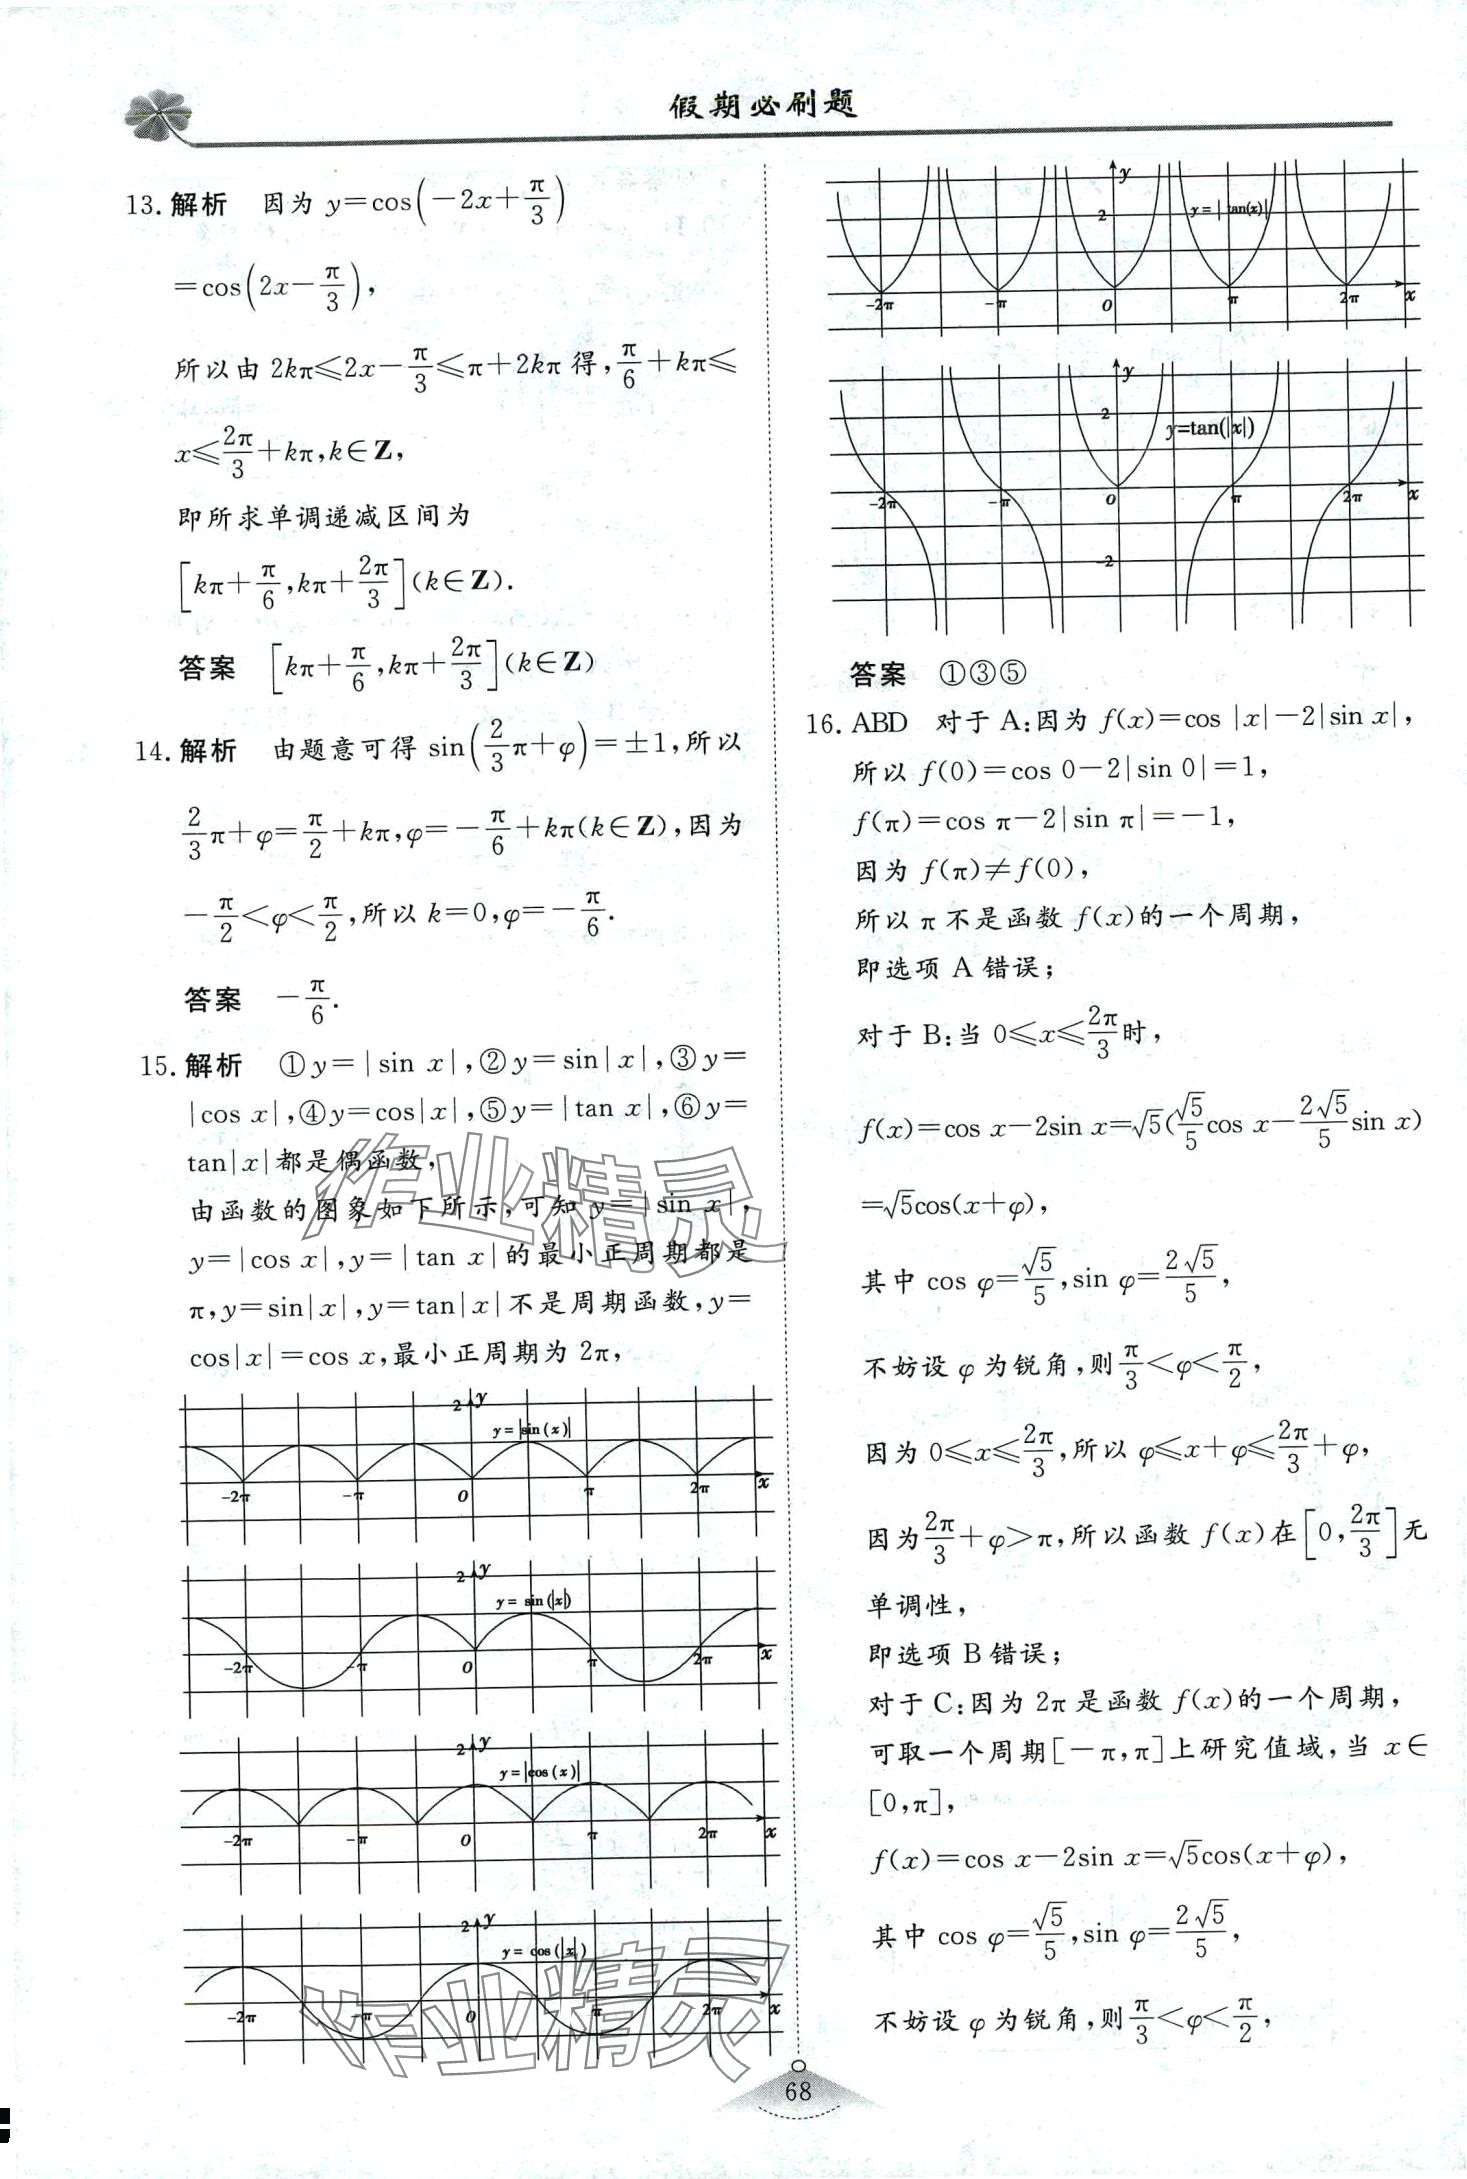 假期必刷题
13. 解析 因为 y=cos(-2x+π/3)
=cos(2x-π/3),
所以由 2kπ≤2x-π/3≤π+2kπ 得,π/6+kπ≤
x≤2π/3+kπ,k∈Z,
即所求单调递减区间为
[kπ+π/6,kπ+2π/3](k∈Z).
答案 [kπ+π/6,kπ+2π/3](k∈Z)
14. 解析 由题意可得 sin(2/3π+φ)=±1,所以
2/3π+φ=π/2+kπ,φ=-π/6+kπ(k∈Z),因为
-π/2<φ<π/2,所以 k=0,φ=-π/6.
答案 -π/6.
15. 解析 ①y=|sin x|,②y=sin|x|,③y=
|cos x|,④y=cos|x|,⑤y=|tan x|,⑥y=
tan|x|都是偶函数,
由函数的图象如下所示,可知 y=|sin x|,
y=|cos x|,y=|tan x|的最小正周期都是
π,y=sin|x|,y=tan|x|不是周期函数,y=
cos|x|=cos x,最小正周期为 2π,
2 y
y=|sin(x)|
-2π -π O π 2π x
2 y
y=sin(|x|)
-2π -π O π 2π x
2 y
y=|cos(x)|
-2π -π O π 2π x
2 y
y=cos(|x|)
-2π -π O π 2π x
y
2 y=|tan(x)|
-2π -π O π 2π x
y
2
y=tan(|x|)
-2π -π O π 2π x
-2
答案 ①③⑤
16. ABD 对于 A:因为 f(x)=cos |x|-2|sin x|,
所以 f(0)=cos 0-2|sin 0|=1,
f(π)=cos π-2|sin π|=-1,
因为 f(π)≠f(0),
所以 π 不是函数 f(x)的一个周期,
即选项 A 错误;
对于 B:当 0≤x≤2π/3时,
f(x)=cos x-2sin x=√5(√5/5cos x-2√5/5sin x)
=√5cos(x+φ),
其中 cos φ=√5/5,sin φ=2√5/5,
不妨设 φ 为锐角,则π/3<φ<π/2,
因为 0≤x≤2π/3,所以 φ≤x+φ≤2π/3+φ,
因为2π/3+φ>π,所以函数 f(x)在[0,2π/3]无
单调性,
即选项 B 错误;
对于 C:因为 2π 是函数 f(x)的一个周期,
可取一个周期[-π,π]上研究值域,当 x∈
[0,π],
f(x)=cos x-2sin x=√5cos(x+φ),
其中 cos φ=√5/5,sin φ=2√5/5,
不妨设 φ 为锐角,则π/3<φ<π/2,
68
作业精灵
作业精灵